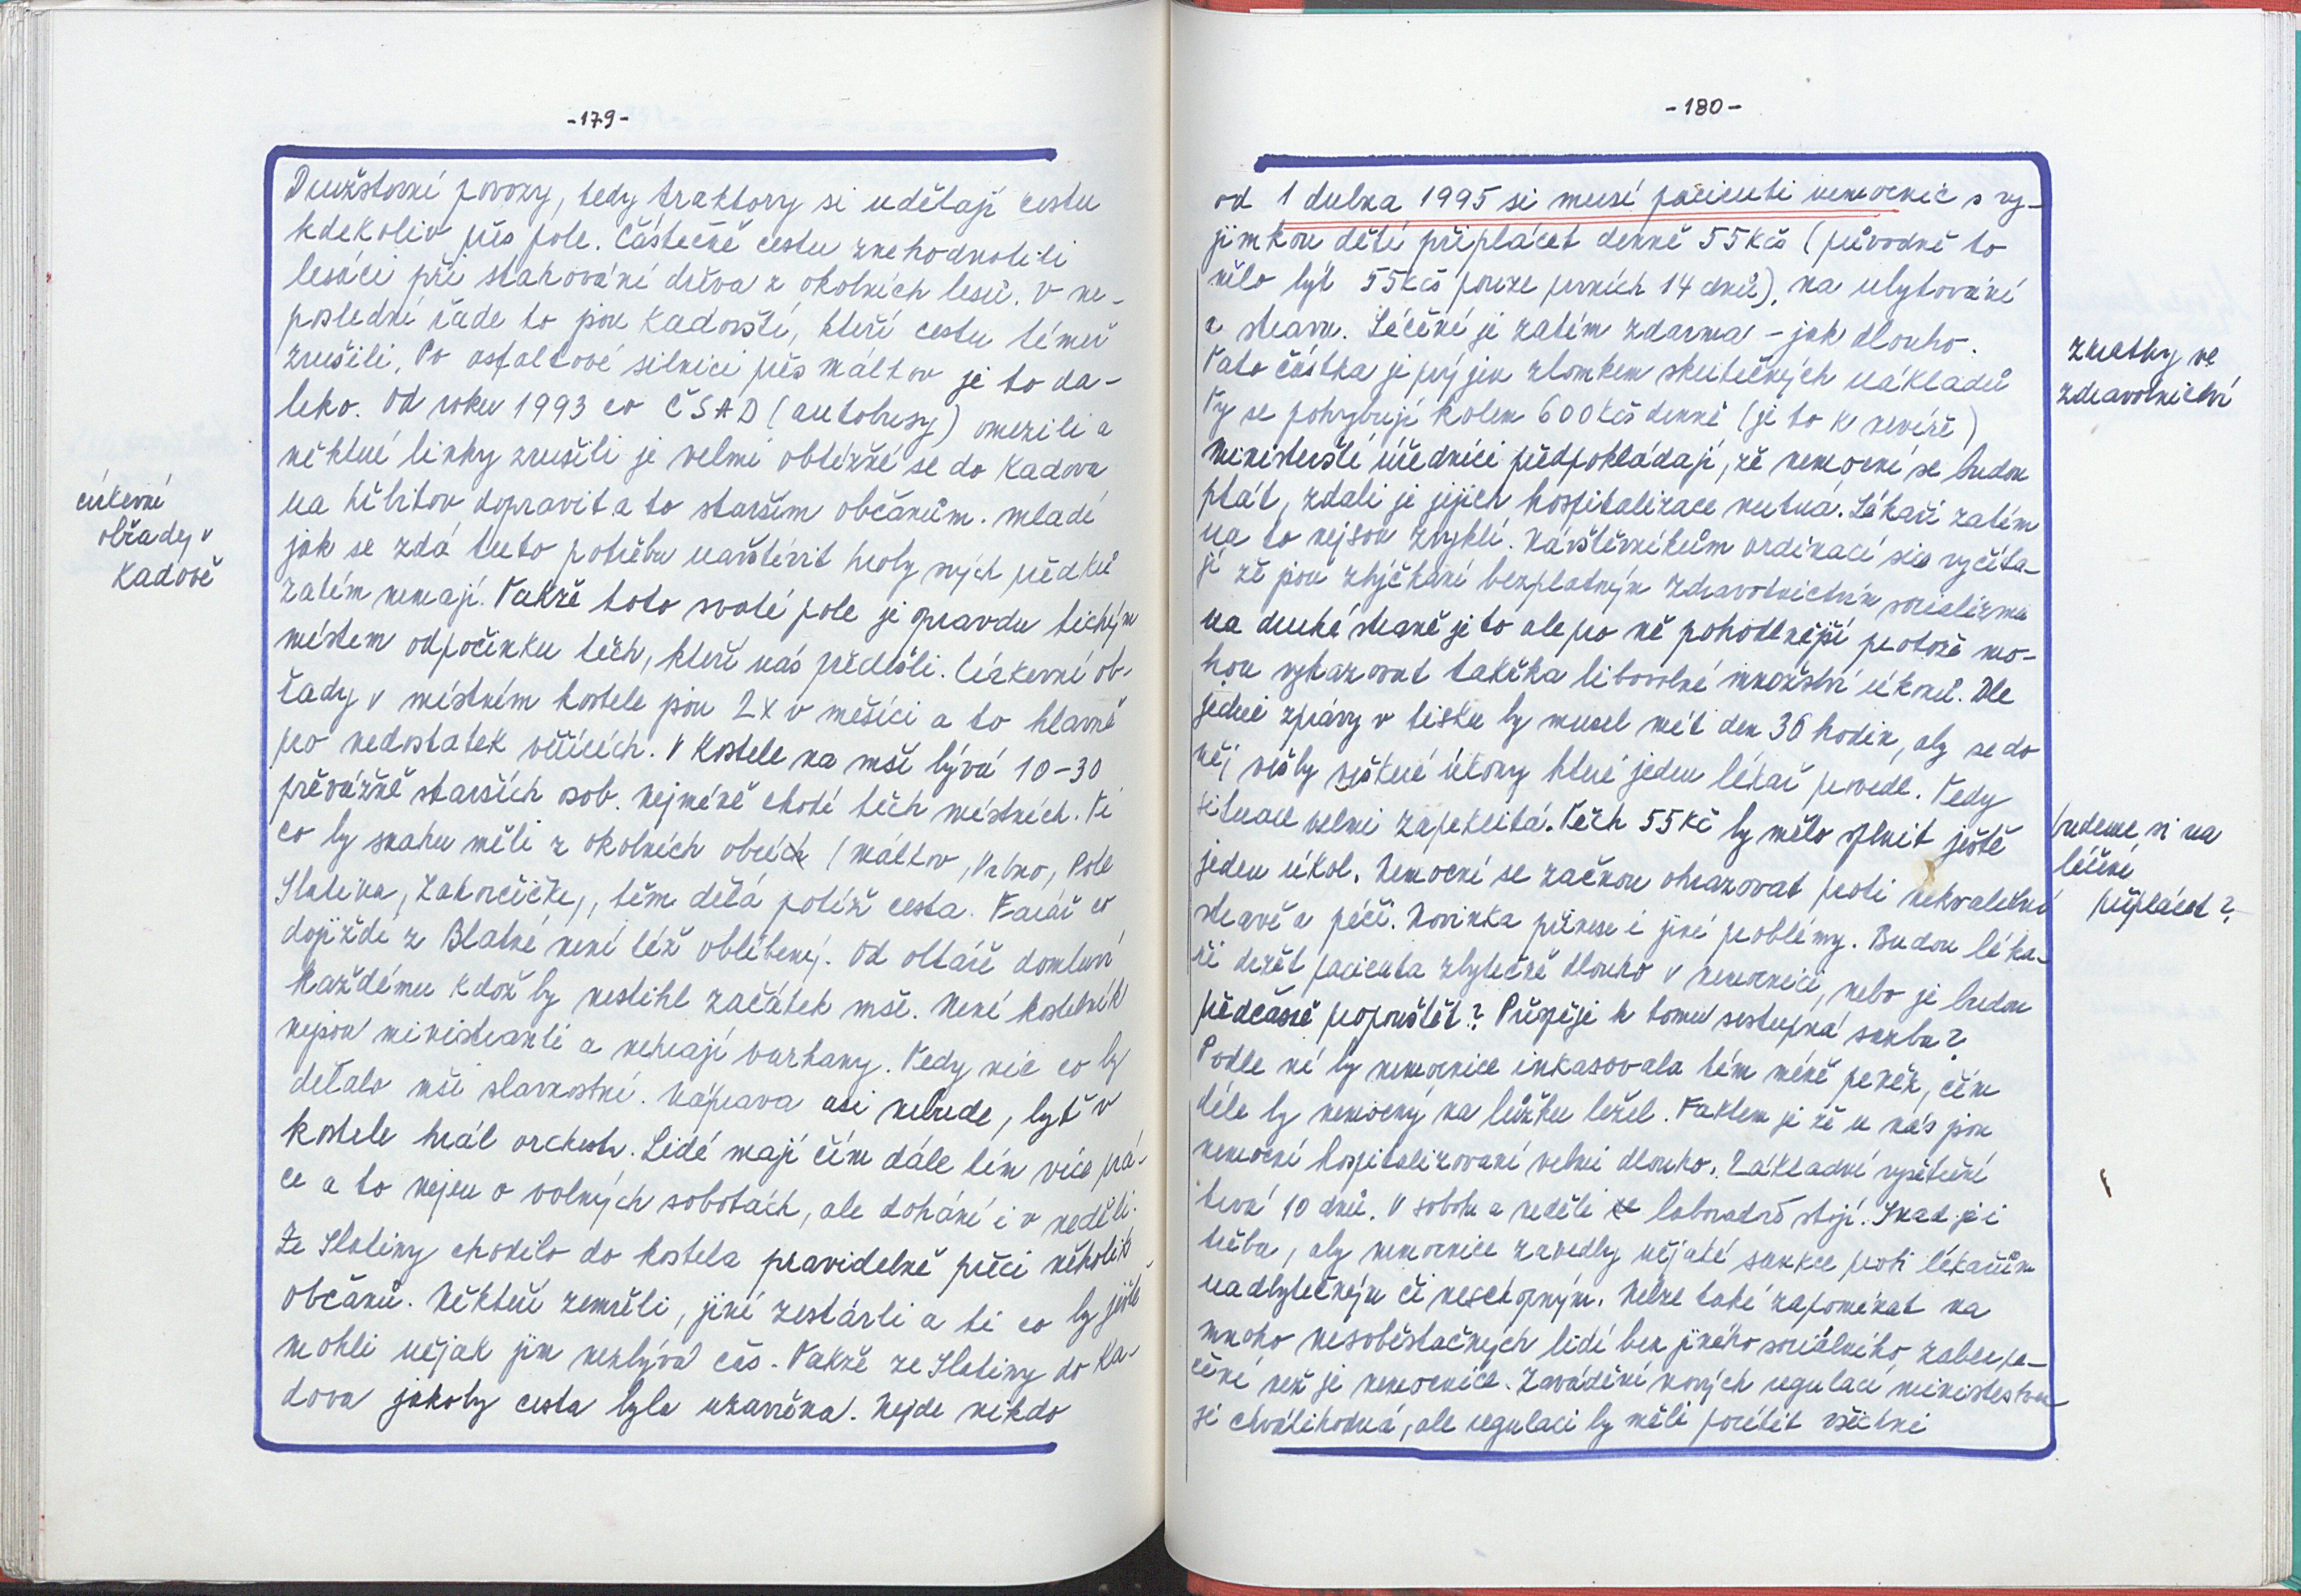 -179-
Družstevní povozy, tedy traktory si udělají cestu
kdekoliv přes pole. Částečně cestu znehodnotili
lesáci při stahování dřeva z okolních lesů. V ne-
poslední řade to jsou Kadovští, kteří cestu témeř
zrušili. Po asfaltové silnici přes Máltov je to da-
leko. Od roku 1993 co ČSAD (autobusy) omezili a
některé linky zrušili je velmi obtížné se do Kadova
na hřbitov dopravit a to starším občanům. Mladí
církevní
obřady v
Kadově
jak se zdá tuto potřebu navštívit hroby svých předků
zatím nemají. Takže toto svaté pole je opravdu tichým
místem odpočinku těch, kteří nás předešli. Církevní ob-
řady v místním kostele jsou 2x v měsíci a to hlavně
pro nedostatek věřících. V kostele na mši bývá 10-30
převážně starších osob. Nejméně chodí těch místních. Ti
co by snahu měli z okolních obcích (Máltov, Vrbno, Pole
Slatina, Záhorčičky,, těm dělá potíž cesta. Farář co
dojíždí z Blatné není též oblíbený. Od oltáře domluví
každému kdož by nestihl začátek mše. Není kostelník
nejsou ministranti a nehrají varhany. Tedy nic co by
dělalo mši slavnostní. Náprava asi nebude, byť v
kostele hrál orchestr. Lidé mají čím dále tím více prá-
ce a to nejen o volných sobotách, ale dohání i v neděli.
Ze Slatiny chodilo do kostela pravidelně přeci několik
občanů. Někteří zemřeli, jiní zestárli a ti co by ještě
mohli nějak jim nezbývá čas. Takže ze Slatiny do Ka-
dova jakoby cesta byla uzavřena. Nejde nikdo
-180-
od 1 dubna 1995 si musí pacienti nemocnic s vy-
jimkou dětí připlácet denně 55 Kčs (původně to
mělo být 55 Kčs pouze prvních 14 dnů), na ubytování
a stravu. Léčení je zatím zdarma - jak dlouho.
Tato částka je prý jen zlomkem skutečných nákladů
zmatky ve
zdravotnictví
Ty se pohybují kolem 600 Kčs denně (je to k nevíře)
Ministerští úředníci předpokládají, že nemocní se budou
ptát, zdali je jejich hospitalizace nutná. Lékaři zatím
na to nejsou zvyklí. Návštěvníkům ordinací sice vyčíta-
jí že jsou zhýčkaní bezplatným zdravotnictvím socializmu
na druhé straně je to ale pro ně pohodlnější protože mo-
hou vykazovat takřka libovolné množství úkonů. Dle
jedné zprávy v tisku by musel mít den 36 hodin, aby se do
něj vešly veškeré úkony které jeden lékař provedl. Tedy
situace velmi zapeklitá. Těch 55 Kč by mělo splnit ještě
budeme si na
léčení
připlácet?
jeden úkol. Nemocní se začnou ohrazovat proti nekvalitní
stravě a péči. Novinka přinese i jiné problémy. Budou léka-
ři držet pacienta zbytečně dlouho v nemocnici, nebo je budou
předčasně propouštět? Přispěje k tomu sestupná sazba?
Podle ní by nemocnice inkasovala tím méně peněz, čím
déle by nemocný na lůžku ležel. Faktem je že u nás jsou
nemocní hospitalizovaní velmi dlouho. Základní vyšetření
trvá 10 dnů. V sobotu a neděli laboradoř stojí. Snad je i
třeba, aby nemocnice zavedly nějaké sankce proti lékařům
nadbytečným či neschopným. Nelze také zapomínat na
mnoho nesoběstačných lidí bez jiného sociálního zabezpe-
čení než je nemocnice. Zavádění nových regulací ministerstvu
je chválihodná, ale regulaci by měli pocítit všichni